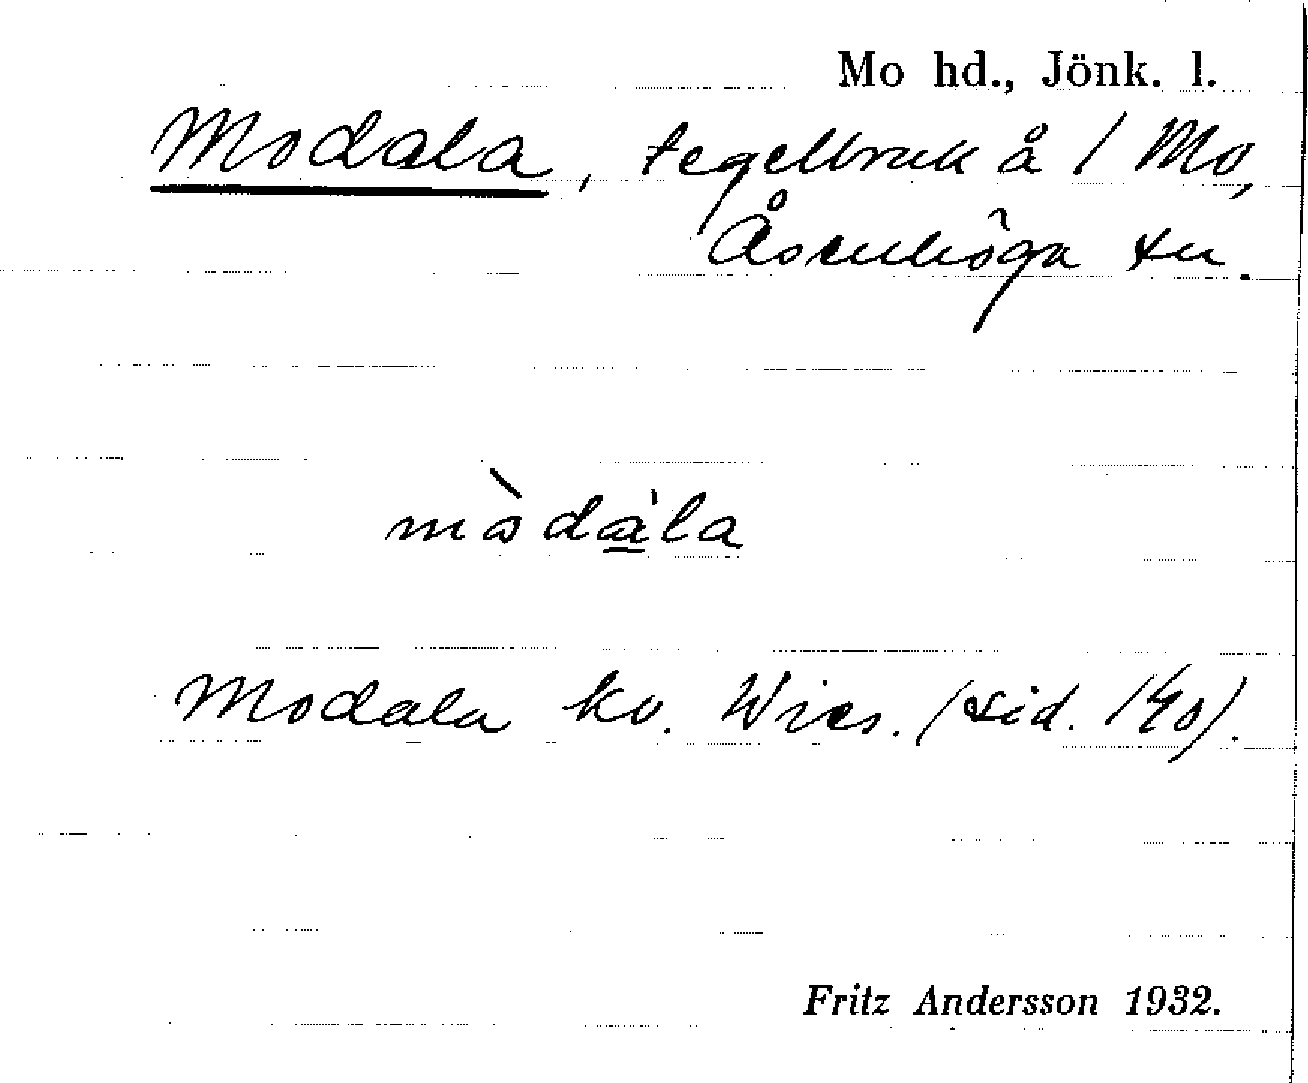 Mo hd., Jönk. l.
Modala, tegelbruk å 1 Mo,
Åsenhöga sn.
mòda̲̍la
Modala kv. Wies. (sid. 140).
Fritz Andersson 1932.